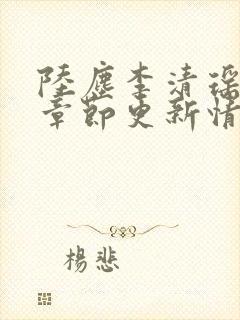 陸塵李清瑤
章節更新情
楊悲